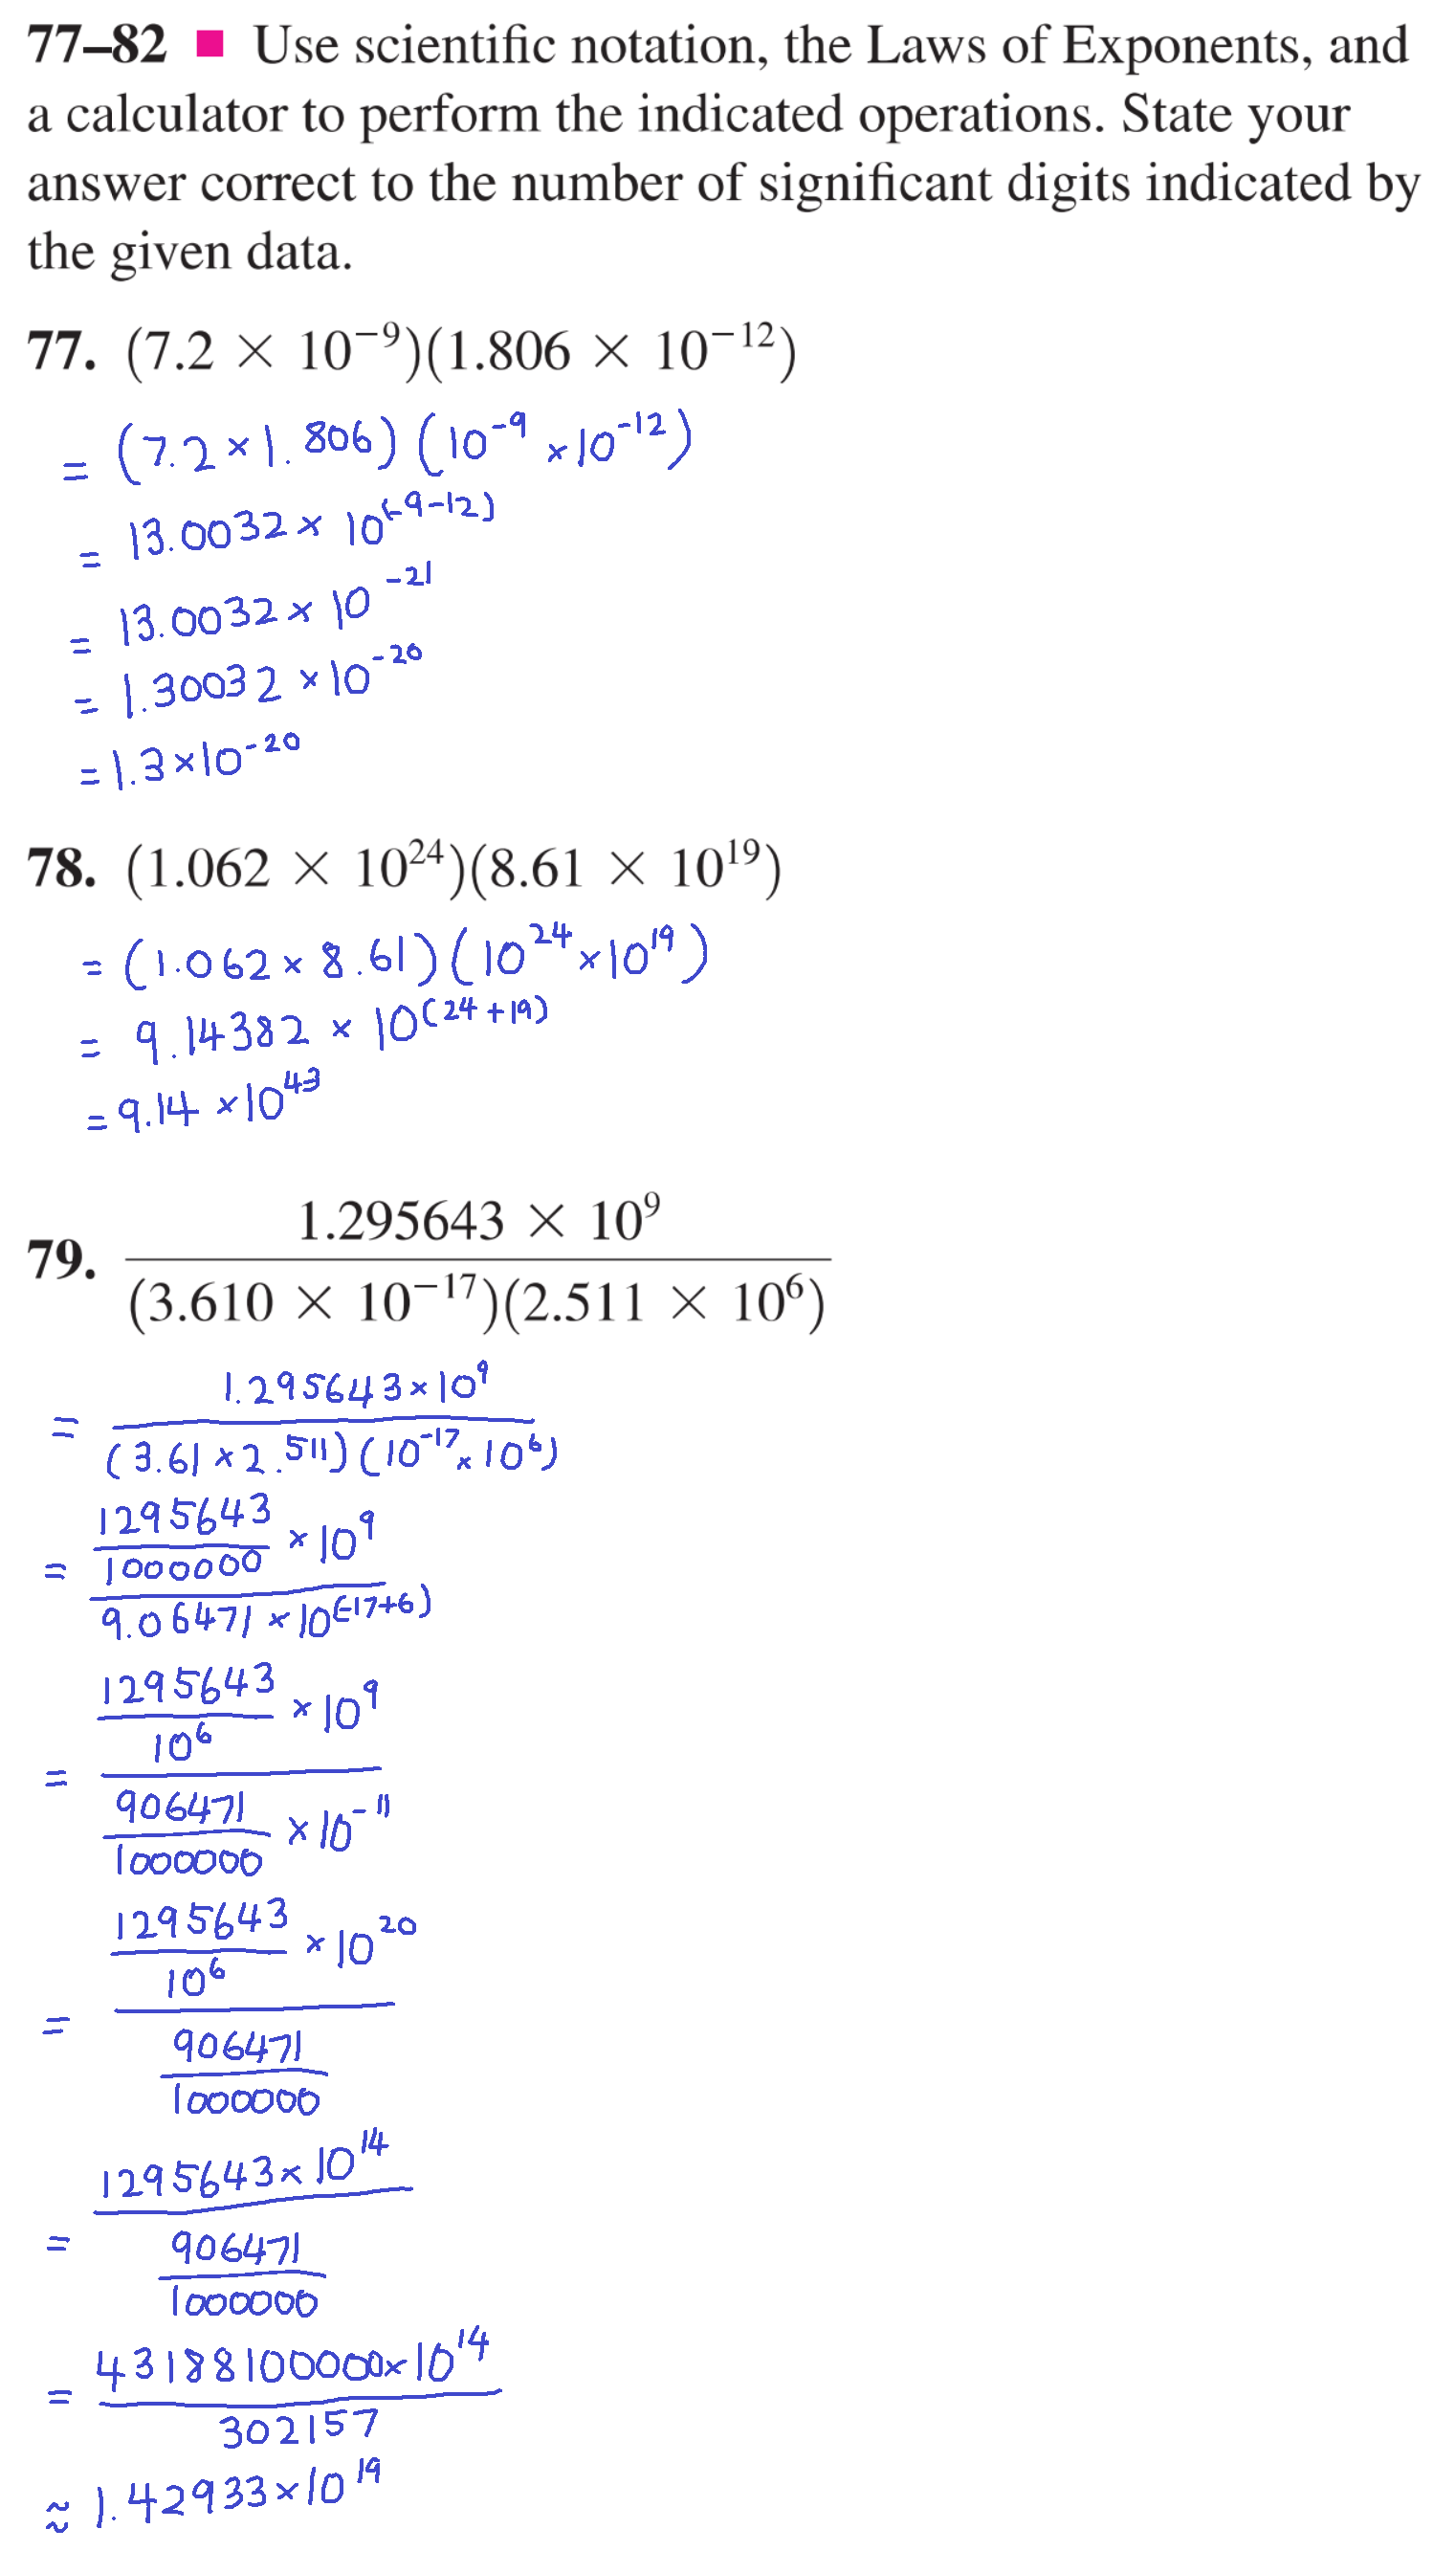 77–82 ■ Use scientific notation, the Laws of Exponents, and
a calculator to perform the indicated operations. State your
answer correct to the number of significant digits indicated by
the given data.
77. (7.2 × 10⁻⁹)(1.806 × 10⁻¹²)
= (7.2 × 1.806)(10⁻⁹ × 10⁻¹²)
= 13.0032 × 10⁽⁻⁹⁻¹²⁾
= 13.0032 × 10⁻²¹
= 1.30032 × 10⁻²⁰
= 1.3 × 10⁻²⁰
78. (1.062 × 10²⁴)(8.61 × 10¹⁹)
= (1.062 × 8.61)(10²⁴ × 10¹⁹)
= 9.14382 × 10⁽²⁴⁺¹⁹⁾
= 9.14 × 10⁴³
79.
1.295643 × 10⁹
(3.610 × 10⁻¹⁷)(2.511 × 10⁶)
=
1.295643 × 10⁹
(3.61 × 2.511)(10⁻¹⁷ × 10⁶)
=
1295643
1000000
× 10⁹
9.06471 × 10⁽⁻¹⁷⁺⁶⁾
=
1295643
10⁶
× 10⁹
906471
1000000
× 10⁻¹¹
=
1295643
10⁶
× 10²⁰
906471
1000000
=
1295643 × 10¹⁴
906471
1000000
=
43188100000 × 10¹⁴
302157
≈ 1.42933 × 10¹⁹